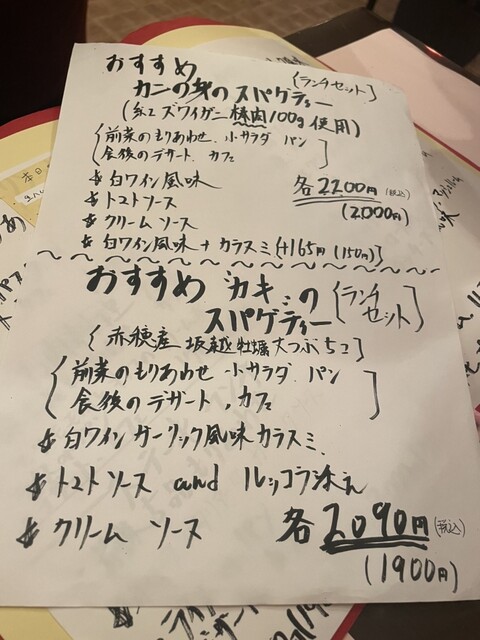 おすすめ
カニの身のスパゲティー
〔ランチセット〕
(紅ズワイガニ棒肉100g使用)
前菜のもりあわせ. 小サラダ パン
食後のデザート. カフェ
白ワイン風味
トマトソース
クリームソース
白ワイン風味 + カラスミ (+165円(150円))
各2200円(税込)
(2000円)
おすすめ "カキ"の
スパゲティー
〔ランチセット〕
赤穂産 坂越牡蠣 大つぶ5コ
前菜のもりあわせ 小サラダ. パン
食後のデザート. カフェ
白ワインガーリック風味カラスミ.
トマトソース and ルッコラ添え
クリーム ソース
各2090円(税込)
(1900円)